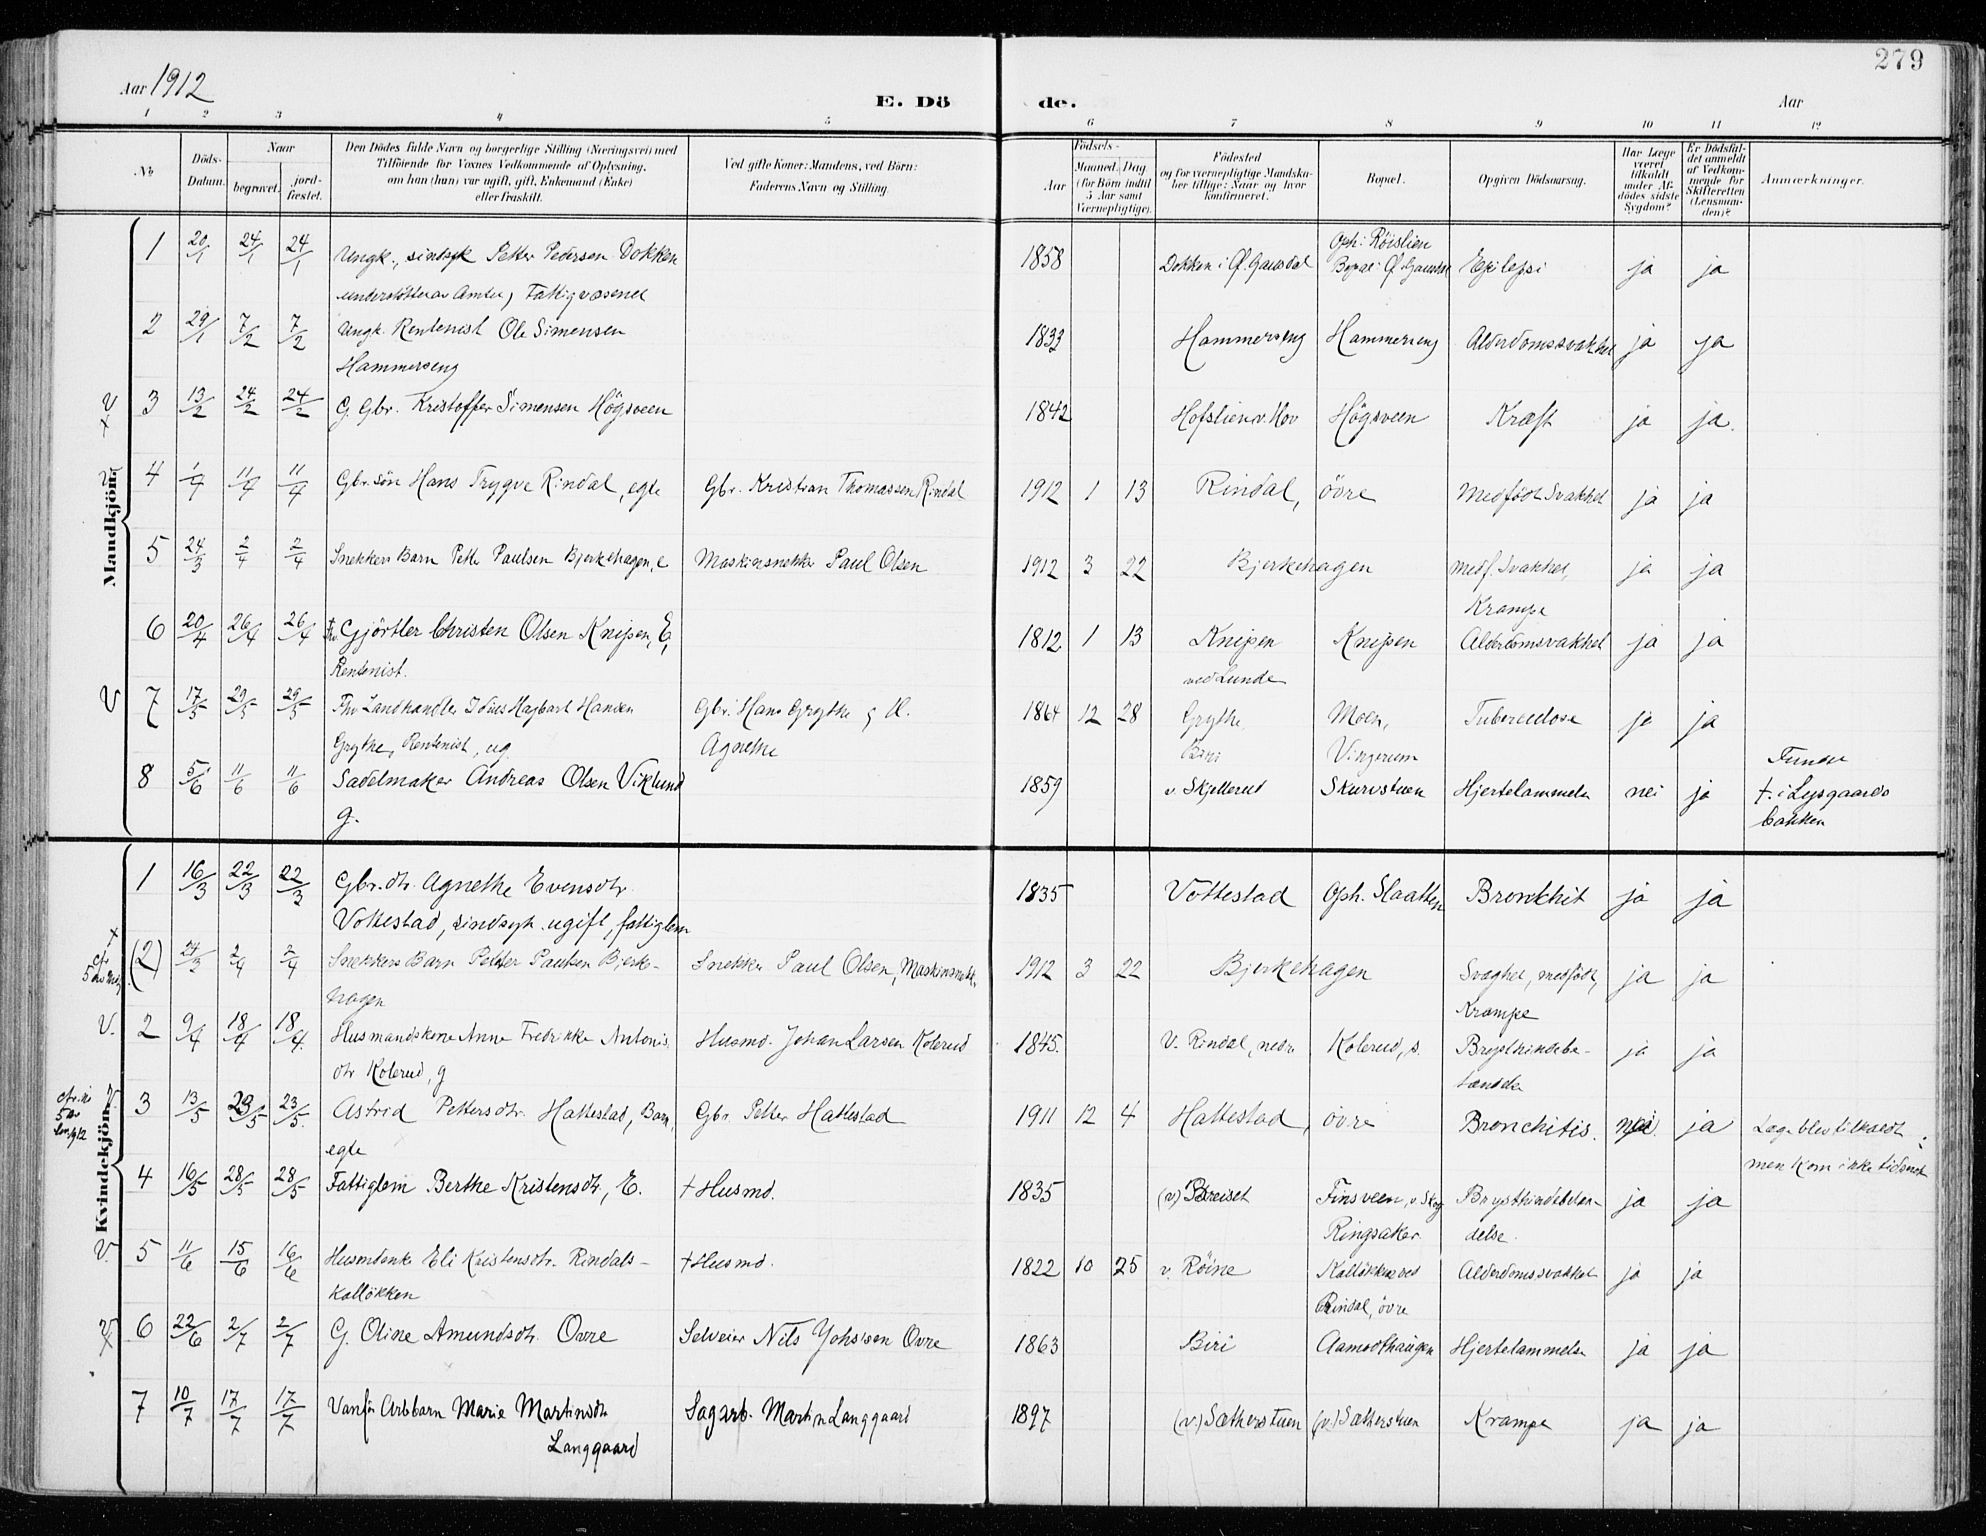 279
Aar 1912
E. Dö de.
Aar
1 2 3 4 5 6 7 8 9 10 11 12
No
Döds-Datum.
Naar begravet. jordfæstet.
Den Dödes fulde Navn og borgerlige Stilling (Næringsvei) med
Tilföiende for Voxnes Vedkommende af Oplysning,
om han (hun) var ugift, gift, Enkemand (Enke)
eller fraskilt.
Ved gifte Koner: Mandens, ved Börn:
Faderens Navn og Stilling.
Aar
Födsels-
Maaned. Dag.
(for Börn indtil
5 Aar samt
Værnepligtige).
Födested
og for værnepligtige Mandska-
ber tillige: Naar og hvor
konfirmeret.
Bopæl.
Opgiven Dödsaarsag.
Har Læge
været
tilkaldt
under Af-
dödes sidste
Sygdom?
Er Dödsfal-
det anmeldt
af Vedkom-
mende for
Skifteretten
(Lensman-
den)?
Anmærkninger.
Mandkjön.
1 20/1 24/1 24/1 Ungk., sindsyk Petter Pedersen Dokken 1858 Dokken i Ø. Gausdal Oph: Röislien Epilepsi ja ja
Fattigvæsenet
2 29/1 7/2 7/2 Ungk. Rentenist Ole Simensen 1833 Hammerseng Hammerseng Alderdomssvakhet ja ja
Hammerseng
V 3 13/2 24/2 24/2 G. Gbr. Kristoffer Simensen Högsveen 1842 Hofslien v. Hov Högsveen Kræft ja ja.
4 1/4 11/4 11/4 Gbr. sön Hans Trygve Rindal, egte Gbr. Kristian Thomassen Rindal 1912 1 13 Rindal, övre Medfödt Svakhet ja ja
5 24/3 2/4 2/4 Snekkers Barn Petter Paulsen Bjerkehagen, e Maskinsnekker Paul Olsen 1912 3 22 Bjerkehagen Medf. Svakhet, ja ja
Krampe
6 20/4 26/4 26/4 Fhv. Gjörtler Christen Olsen Knipen, E, 1812 1 13 Knipen Knipen Alderdomsvakhet ja ja
Rentenist. ved Lunde
V 7 17/5 29/5 29/5 Fhv Landhandler Hagbart Hansen Gbr. Hans Grythe og H. 1864 12 28 Grythe, Moen, Tuberculose ja ja
Grythe, Rentenist, ug. Agnethe Biri Vingrom
8 5/6 11/6 11/6 Sadelmaker Andreas Olsen Viklund 1859 v Skjellerud Skurvstuen Hjertelammelse nei ja Funden
g. † i Lysgaards
bakken
Kvindekjön.
1 16/3 22/3 22/3 Gbr. dtr. Agnethe Evensdtr. 1835 Vottestad Oph. Slaatten Bronchit ja ja
Vottestad, sindsyk ugift, fattiglem
(2) 24/3 2/4 2/4 Snekkers Barn Petter Paulsen Bjerke- Snekker Paul Olsen, Maskinsnekk. 1912 3 22 Bjerkehagen Svaghet, medfödt, ja ja
hagen Krampe
V. 2 9/4 18/4 18/4 Husmandskone Anne Fredrikke Antonis Husmd. Johan Larsen Kolerud 1845. V. Rindal, nedr. Kolerud, s. Brysthindebe- ja ja
dtr Kolerud, g tændelse
V. 3 13/5 23/5 23/5. Astrid Pettersdtr. Hattestad, Barn, Gbr. Petter Hattestad 1911 12 4 Hattestad, övre Bronchitis. nei. ja Læge blev tilkaldt,
egte men kom ikke tidsnok
4 16/5 28/5 28/5 Fattiglem Berthe Kristensdtr, E. † Husmd. 1835 (v) Breiset Finsveen, v Skog Brysthindebetæn- ja ja
Ringsaker delse.
V. 5 11/6 15/6 16/6 Husmdenke Eli Kristensdtr. Rindals- † Husmd. 1822 10 25 v. Röine Kallökken ved Alderdomssvakhet ja ja
kallökken Rindal, övre
6 22/6 2/7 2/7 G. Oline Amundsdtr. Ovre Selveier Nils Johnsen Ovre 1863 Biri Aamodthaugen Hjertelammelse ja ja
7 10/7 17/7 17/7 Vanför Arbbarn Marie Martinsdtr Sagarb. Martin Langgaard 1897 (v.) Sætherstuen (v.) Sætherstuen Krampe ja ja
Langgaard